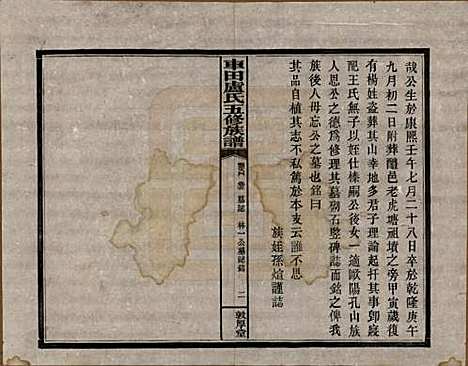 哉公生於康熙壬午七月二十八日卒於乾隆庚午
九月初二日附葬醴邑老虎塘祖墳之旁甲寅歲復
有楊姓盜葬其山幸地多君子理論起扦其事卽寢
配王氏無子以姪仕榛嗣公後女一適歐陽孔山族
人恩公之德爲修理其墓砌石豎碑誌而銘之俾我
族後人毋忘公之墓也銘曰
其品自植其志不私篤於本支云誰不思
族姪孫煊謹誌
車田盧氏五修族譜
墓誌 林一公墓誌銘
二
敦厚堂